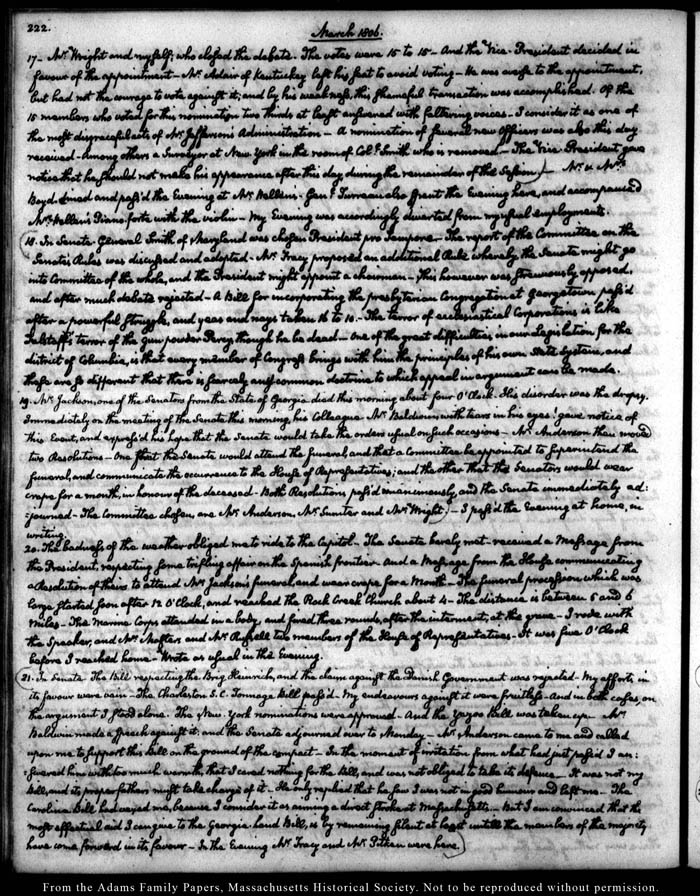 222.
March 1806.
17. Mr. Wright and myself, who closed the debate. The votes were 15 to 15 - And the Vice-President decided in
favour of the appointment - Mr. Adair of Kentucky left his seat to avoid voting - He was averse to the appointment,
but had not the courage to vote against it; and by his weakness, this shameful transaction was accomplished. Of the
15 members who voted for this nomination two thirds at least answered with faltering voices - I consider it as one of
the most disgraceful acts of Mr. Jefferson's Administration - A nomination of several new Officers was also this day
received - Among others a Surveyor at New York in the room of Coll. Smith who is removed - The Vice President gave
notice that he should not make his appearance after this day, during the remainder of the Session.) - Mr. & Mrs.
Boyd dined and pass'd the Evening at Mr. Hellen's - Genl. Turreau also spent the Evening here, and accompanied
Mrs. Hellen's Piano forte with the violin - My Evening was accordingly diverted from my usual employments.
(18. In Senate General Smith of Maryland was chosen President pro Tempore. The report of the Committee on the
Senate's Rules was discussed and adopted - Mr. Tracy proposed an additional Rule whereby the Senate might go
into Committee of the whole, and the President might appoint a chairman - This however was strenuously opposed,
and after much debate rejected - A Bill for incorporating the presbyterian Congregation at Georgetown, pass'd
after a powerful struggle, and yeas and nays taken 16 to 10. - The terror of ecclesiastical Corporations is like
Falstaff's terror of the gun powder Percy, though he be dead - One of the great difficulties in our Legislation for the
district of Columbia, is that every member of Congress brings with him the principles of his own State System, and
these are so different that there is scarcely any common doctrine to which appeal in argument can be made.
19. Mr. Jackson, one of the Senators from the State of Georgia died this morning about four O'Clock. His disorder was the dropsy.
Immediately on the meeting of the Senate this morning, his Colleague Mr. Baldwin, with tears in his eyes! gave notice of
this Event, and express'd his hope that the Senate would take the orders usual on such occasions - Mr. Anderson then moved
two Resolutions - One that the Senate would attend the funeral, and that a Committee be appointed to superintend the
funeral, and communicate the occurrence to the House of Representatives; and the other that the Senators would wear
crape for a month, in honour of the deceased - Both Resolutions pass'd unanimously, and the Senate immediately ad:
:journed - The Committee chosen, are Mr. Anderson, Mr. Sumter and Mr. Wright) - I pass'd the Evening at home, in
writing.
20. The badness of the weather obliged me to ride to the Capitol - The Senate barely met - received a Message from
the President, respecting some trifling affair on the Spanish frontier - And a Message from the House communicating
a Resolution of theirs to attend Mr. Jackson's funeral, and wear crape for a Month - The funeral procession which was
large started soon after 12 O'Clock, and reached the Rock Creek Church about 4 - The distance is between 5 and 6
Miles - The Marine Corps attended in a body and fired three rounds, after the interment, at the grave - I rode with
the Speaker, and Mr. Masters and Mr. Russell two members of the House of Representatives - It was five O'Clock
before I reached home - Wrote as usual in the Evening.
(21. In Senate The bill respecting the Brig Heinrich, and the claim against the Danish Government was rejected - My efforts in
its favour were vain - The Charleston S.C. Tonnage Bill pass'd - My endeavours against it were fruitless - And in both cases, on
the argument I stood alone. The New-York nominations were approved - And the Yazoo Bill was taken up - Mr.
Baldwin made a Speech against it; and the Senate adjourned over to Monday - Mr. Anderson came to me and called
upon me to support this Bill on the ground of the compact - In the moment of irritation from what had just pass'd I an:
:swered him with too much warmth, that I cared nothing for the Bill, and was not obliged to take its defence - It was not my
Bill, and its proper fathers must take charge of it - He only replied that he saw I was not in good humour and left me - The
Carolina Bill had vexed me, because I consider it as aiming a direct stroke at Massachusetts - But I am convinced that the
most effectual aid I can give to the Georgia land Bill, is by remaining silent at least untill the members of the majority
have come forward in its favour - In the Evening Mr. Tracy and Mr. Pitkin were here.)
From the Adams Family Papers, Massachusetts Historical Society. Not to be reproduced without permission.